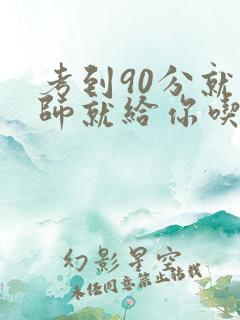 考到90分就
師就給你喫
幻影星空
未经同意禁止转载